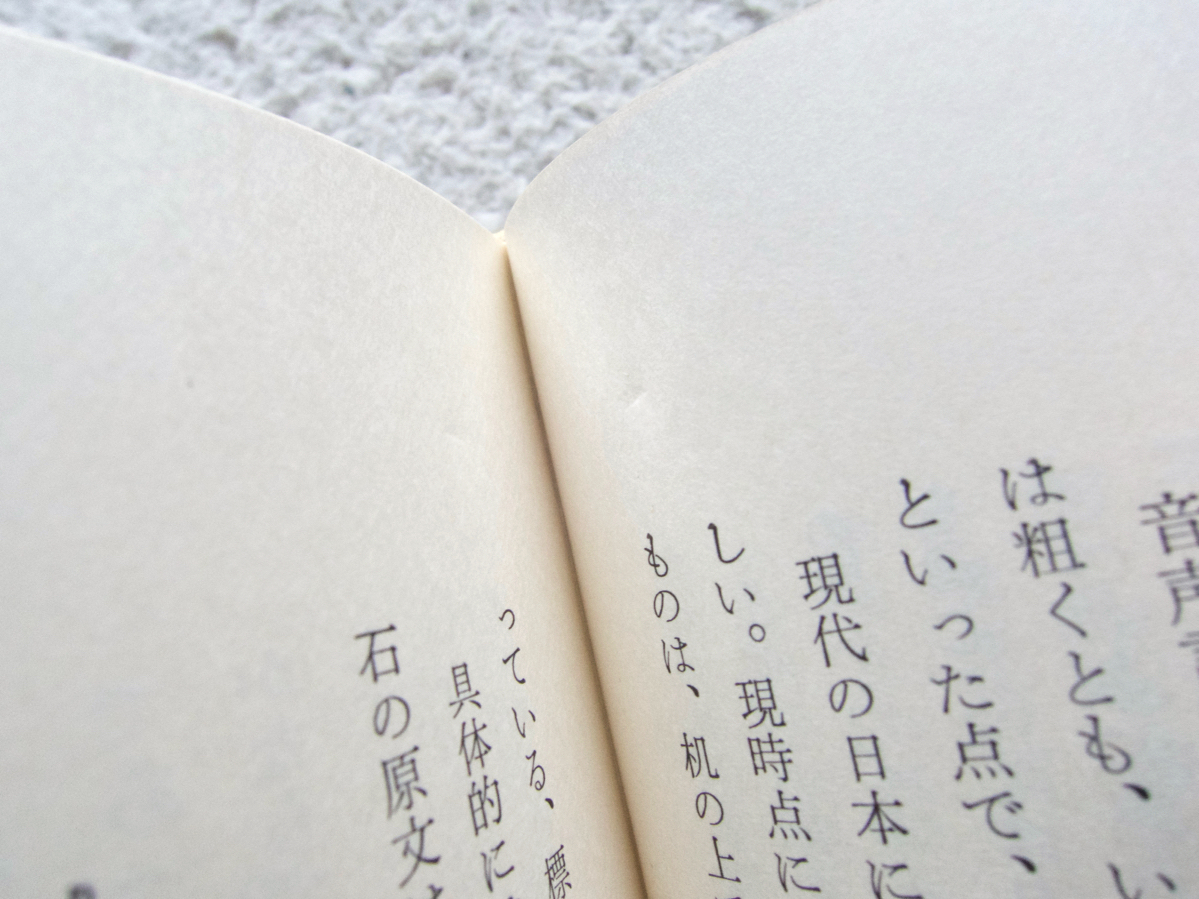 音声
は粗くとも、い
といった点で、
現代の日本に
しい。現時点に
ものは、机の上
っている、標
具体的に
石の原文